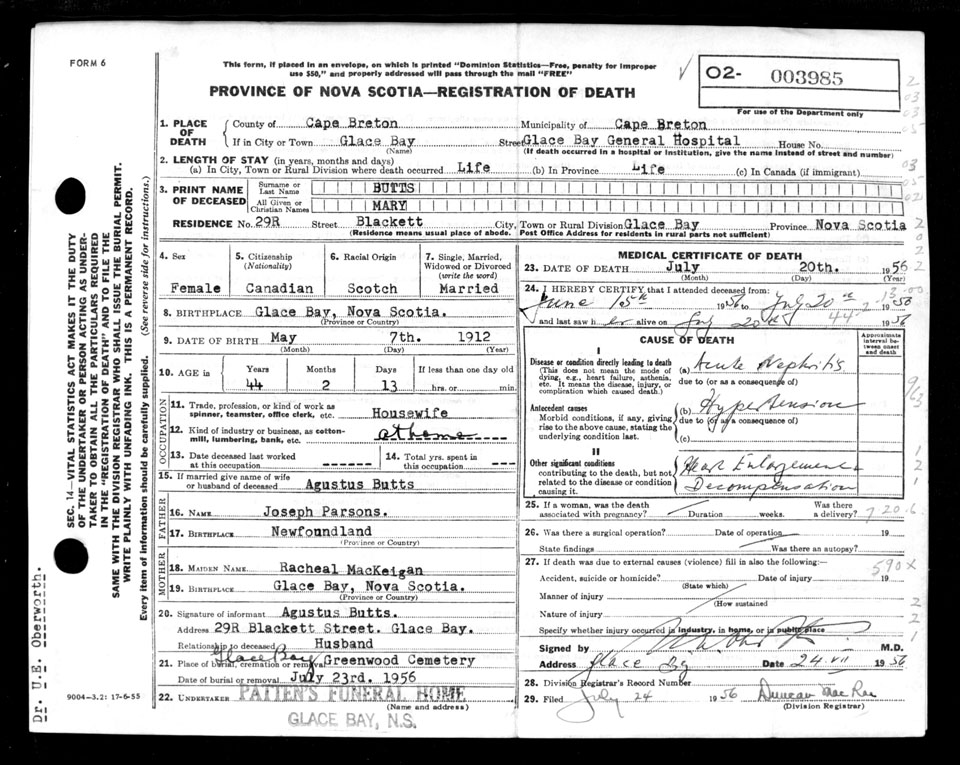 FORM 6
This form, if placed in an envelope, on which is printed "Dominion Statistics—Free, penalty for improper
use $50," and properly addressed will pass through the mail "FREE"
O2- 003985
For use of the Department only
PROVINCE OF NOVA SCOTIA—REGISTRATION OF DEATH
1. PLACE OF DEATH
County of Cape Breton Municipality of Cape Breton
If in City or Town Glace Bay Street Glace Bay General Hospital House No.
(Name) (If death occurred in a hospital or institution, give the name instead of street and number)
2. LENGTH OF STAY (in years, months and days)
(a) In City, Town or Rural Division where death occurred Life (b) In Province Life (c) In Canada (if immigrant)
3. PRINT NAME OF DECEASED
Surname or Last Name BUTTS
All Given or Christian Names MARY
RESIDENCE No. 29R Street Blackett City, Town or Rural Division Glace Bay Province Nova Scotia
(Residence means usual place of abode. Post Office Address for residents in rural parts not sufficient)
4. Sex
Female
5. Citizenship
(Nationality)
Canadian
6. Racial Origin
Scotch
7. Single, Married, Widowed or Divorced
(write the word)
Married
8. BIRTHPLACE Glace Bay, Nova Scotia.
(Province or Country)
9. DATE OF BIRTH May 7th. 1912
(Month) (Day) (Year)
10. AGE in Years Months Days If less than one day old
44 2 13 hrs. or min.
OCCUPATION
11. Trade, profession, or kind of work as
spinner, teamster, office clerk, etc. Housewife
12. Kind of industry or business, as cotton-
mill, lumbering, bank, etc. at home
13. Date deceased last worked
at this occupation
14. Total yrs. spent in
this occupation
15. If married give name of wife
or husband of deceased Agustus Butts
FATHER
16. NAME Joseph Parsons.
17. BIRTHPLACE Newfoundland
(Province or Country)
MOTHER
18. MAIDEN NAME Racheal MacKeigan
19. BIRTHPLACE Glace Bay, Nova Scotia.
(Province or Country)
20. Signature of informant Agustus Butts.
Address 29R Blackett Street. Glace Bay.
Relationship to deceased Husband
21. Place of burial, cremation or removal Glace Bay Greenwood Cemetery
Date of burial or removal July 23rd. 1956
22. UNDERTAKER PATTEN'S FUNERAL HOME
(Name and address)
GLACE BAY, N.S.
MEDICAL CERTIFICATE OF DEATH
23. DATE OF DEATH July 20th. 1956
(Month) (Day) (Year)
24. I HEREBY CERTIFY that I attended deceased from:
June 15th 1956 to July 20th 1956
and last saw her alive on July 20th 1956
CAUSE OF DEATH
Approximate interval between onset and death
I
Disease or condition directly leading to death
(This does not mean the mode of
dying, e.g., heart failure, asthenia,
etc. It means the disease, injury, or
complication which caused death.)
(a) Acute Nephritis
due to (or as a consequence of)
Antecedent causes
Morbid conditions, if any, giving
rise to the above cause, stating the
underlying condition last.
(b) Hypertension
due to (or as a consequence of)
(c)
II
Other significant conditions
contributing to the death, but not
related to the disease or condition
causing it.
Heart Enlargement
Decompensation
25. If a woman, was the death
associated with pregnancy? Duration weeks. Was there
a delivery?
26. Was there a surgical operation? Date of operation 19
State findings Was there an autopsy?
27. If death was due to external causes (violence) fill in also the following:—
Accident, suicide or homicide? Date of injury 19
(State which)
Manner of injury
(How sustained
Nature of injury
Specify whether injury occurred in industry, in home, or in public place
Signed by M.D.
Address Glace Bay Date 24 VII 1956
28. Division Registrar's Record Number
29. Filed July 24 1956 Duncan MacRae
(Division Registrar)
590X
SEC. 14—VITAL STATISTICS ACT MAKES IT THE DUTY
OF THE UNDERTAKER OR PERSON ACTING AS UNDER-
TAKER TO OBTAIN ALL THE PARTICULARS REQUIRED
IN THE "REGISTRATION OF DEATH" AND TO FILE THE
SAME WITH THE DIVISION REGISTRAR WHO SHALL ISSUE THE BURIAL PERMIT.
WRITE PLAINLY WITH UNFADING INK. THIS IS A PERMANENT RECORD.
Every item of information should be carefully supplied. (See reverse side for instructions.)
Dr. U.E. Oberworth.
9004—3.2: 17-6-55